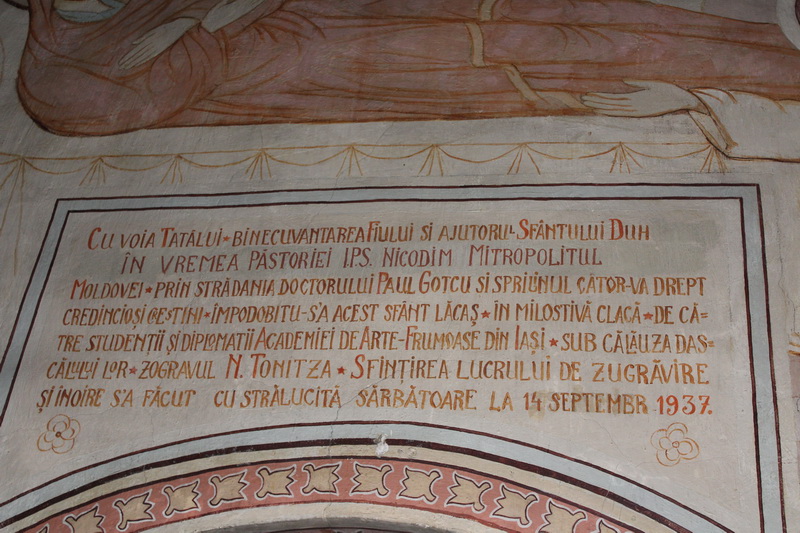 CU VOIA TATĂLUI * BINECUVANTAREA FIULUI SI AJUTORUL SFÂNTULUI DUH
ÎN VREMEA PĂSTORIEI I.P.S. NICODIM MITROPOLITUL
MOLDOVEI * PRIN STRĂDANIA DOCTORULUI PAUL GOTCU SI SPRIJINUL CÂTOR-VA DREPT
CREDINCIOȘI GESTINI * IMPODOBITU-S'A ACEST SFÂNT LĂCAȘ * ÎN MILOSTIVĂ CLACĂ * DE CĂ-
TRE STUDENȚII ȘI DIPLOMAȚII ACADEMIEI DE ARTE-FRUMOASE DIN IAȘI * SUB CĂLĂUZA DAS-
CĂLULUI LOR * ZOGRAVUL N. TONITZA * SFINȚIREA LUCRULUI DE ZUGRĂVIRE
ȘI ÎNOIRE S'A FĂCUT CU STRĂLUCITĂ SĂRBĂTOARE LA 14 SEPTEMBR 1937.